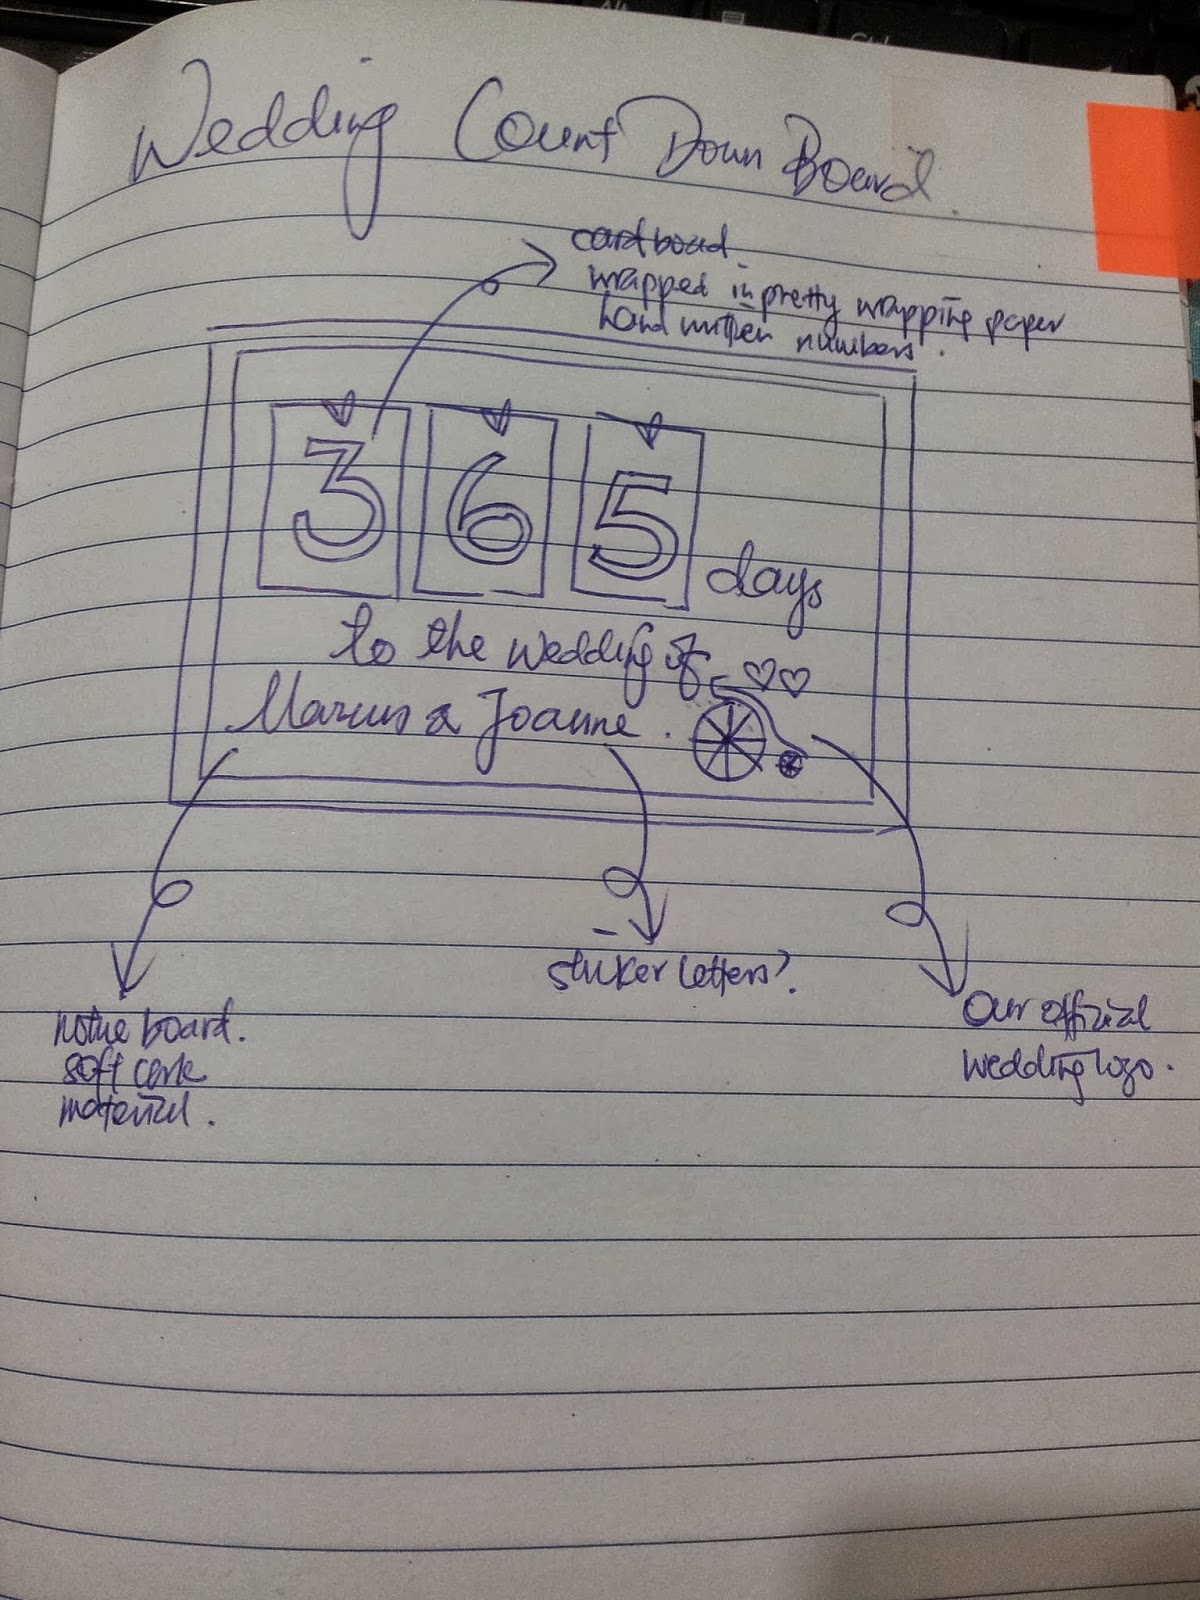 Wedding Count Down Board.
cardboard
wrapped in pretty wrapping paper
hand written numbers.
3 6 5 days
to the wedding of
Marcus & Joanne.
notice board.
soft cork
material.
sticker letters?
our official
wedding logo.